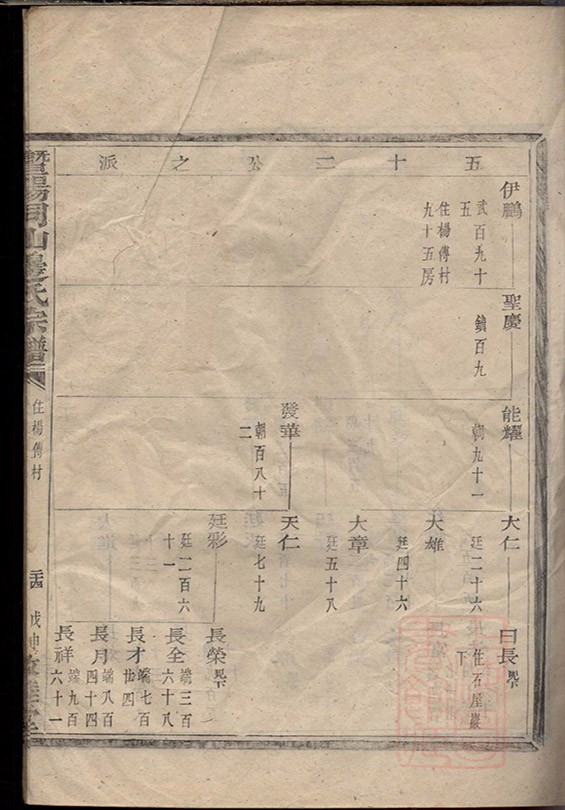 五十二公之派
伊鵬
武百九十五
住楊傅村
九十五房
聖慶
鎮百九
能耀
朝九十一
發華
朝百八十二
大仁
廷二十六
大雄
廷四十六
大章
廷五十八
天仁
廷七十九
廷彩
廷二百六十一
曰長
住石屋巖下
長榮
長全
端三百六十八
長才
端七百廿四
長月
端八百四十四
長祥
端九百六十一
暨陽同山邊氏宗譜
住楊傅村
戊申